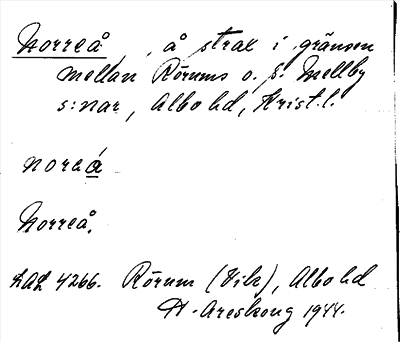 Norreå, å strax i gränsen
mellan Rörums o. S. Mellby
s:nar, Albo hd, Krist.l.
noreá
Norreå.
LAL 4266. Rörum (Vik), Albo hd
H. Areskoug 1944.